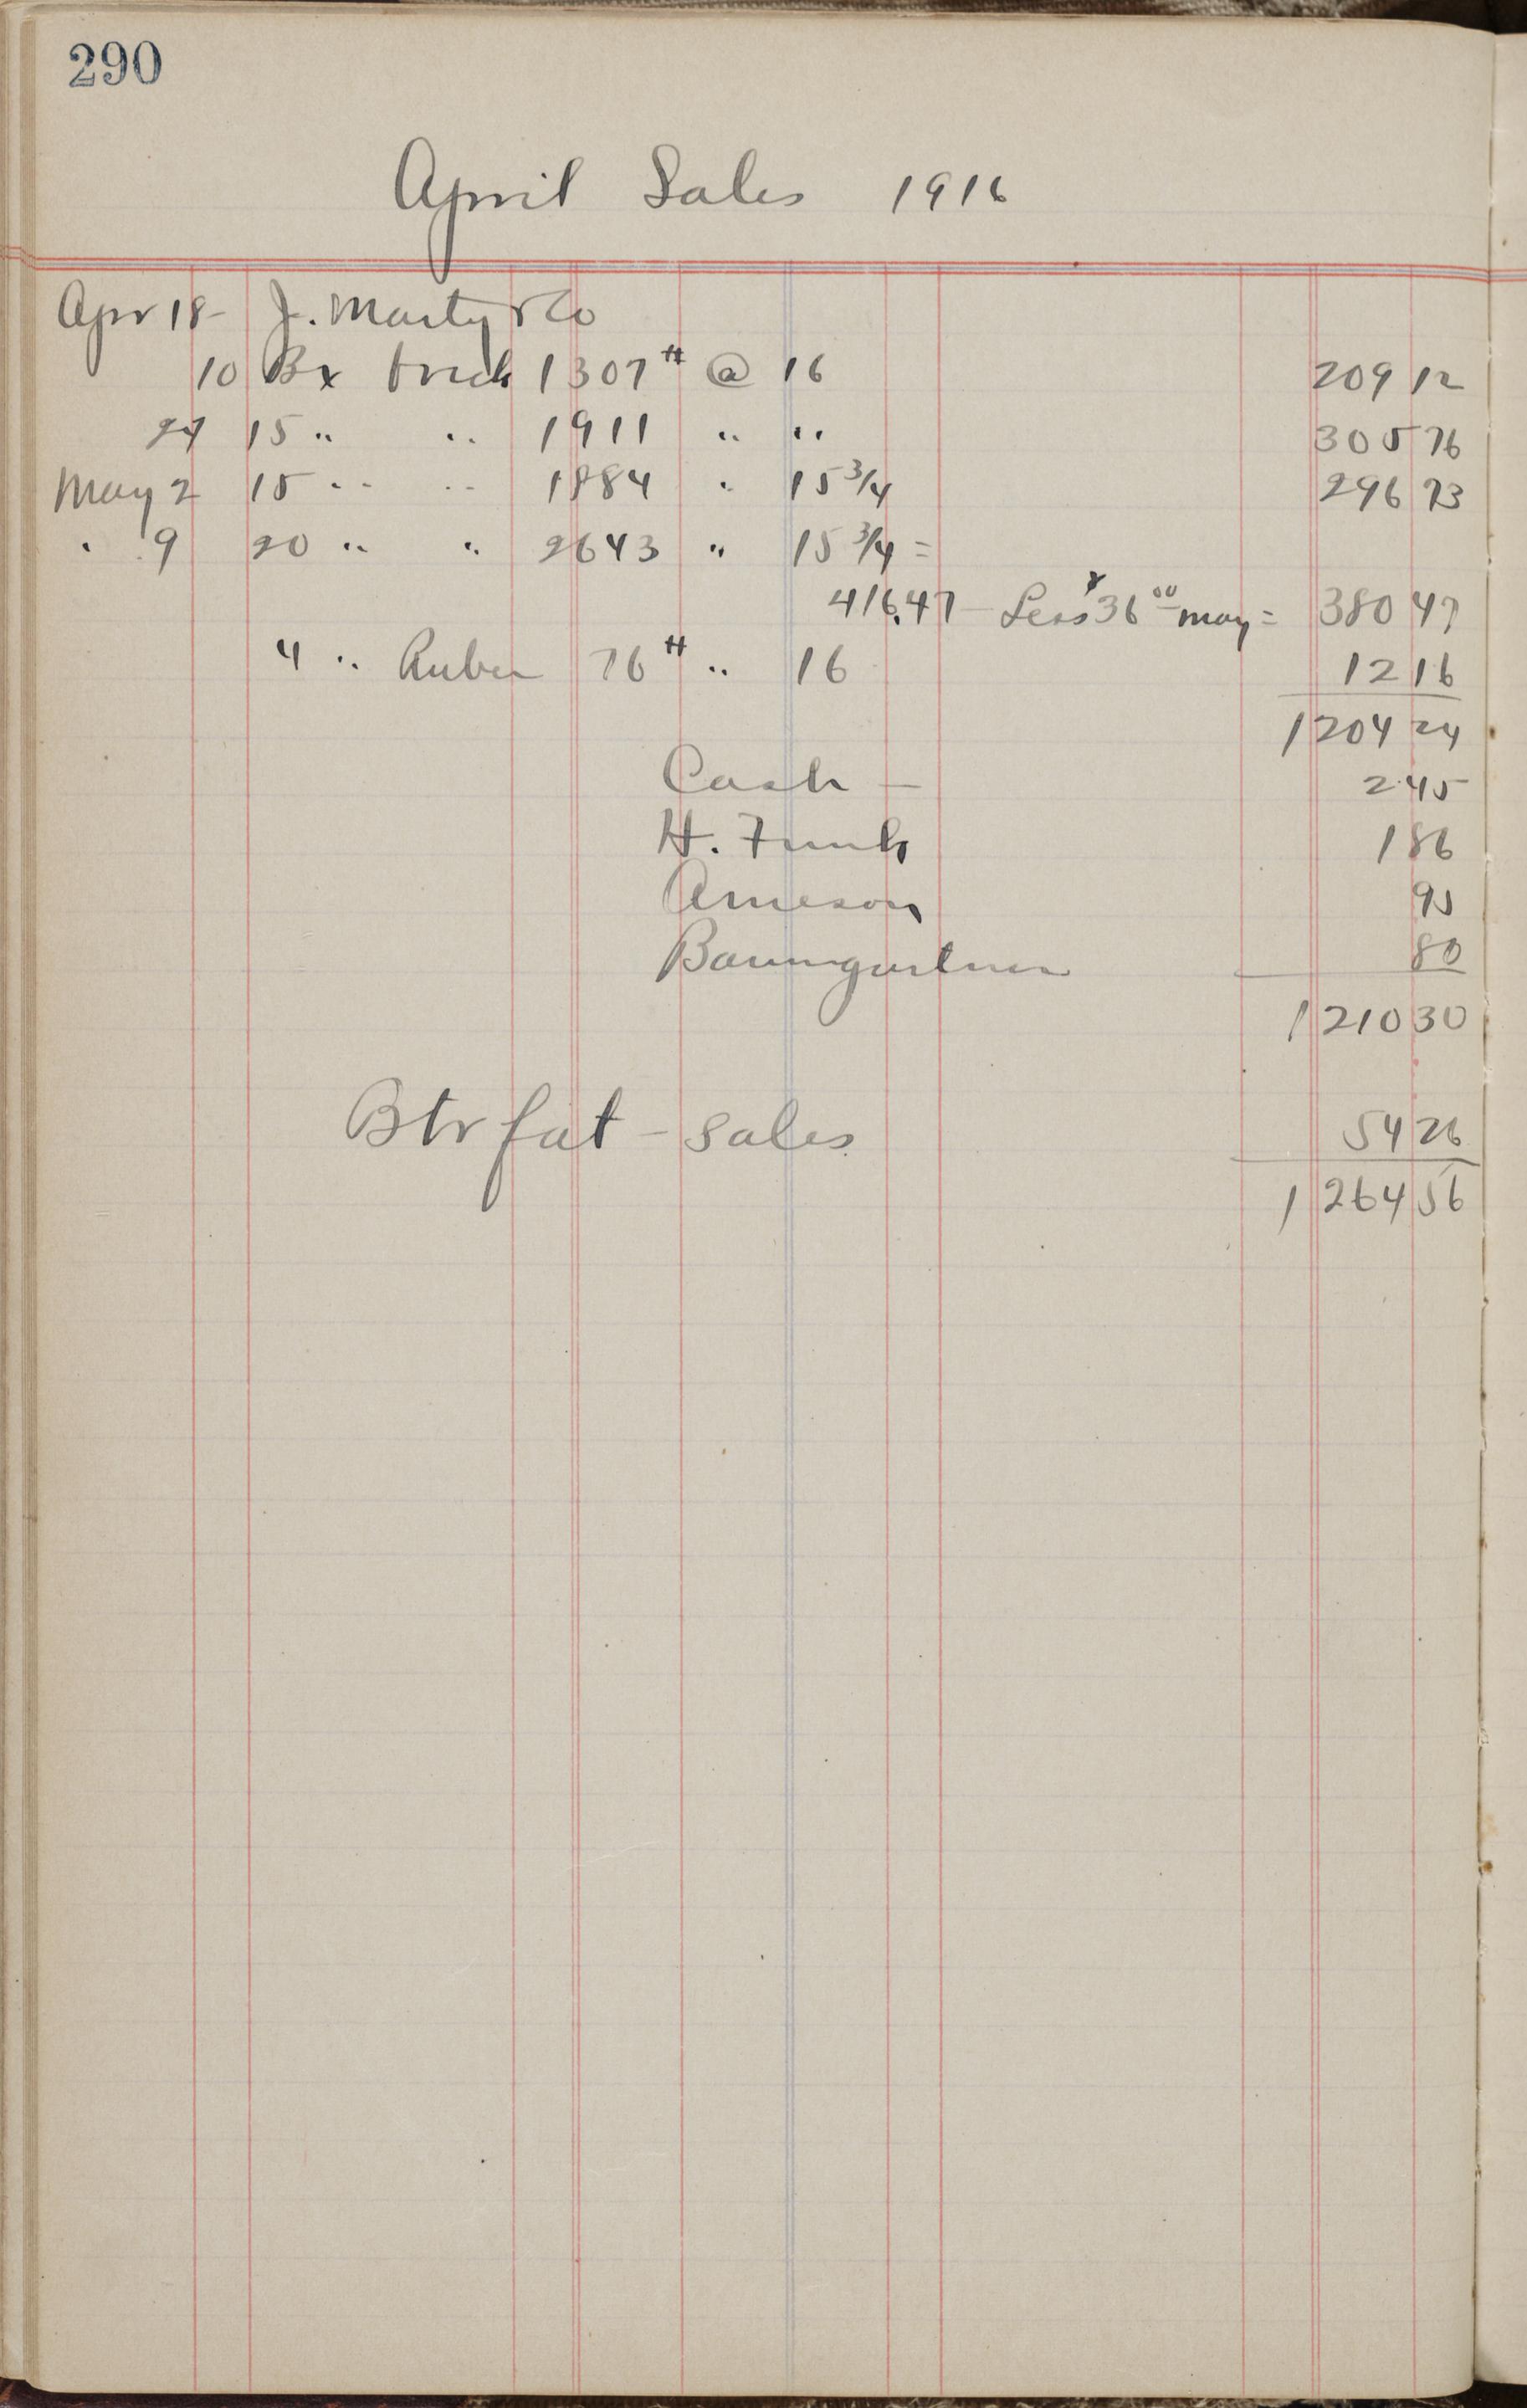 290
April Sales 1916
Apr 18 - J. Marty & Co
10 Bx brick 1307 # @ 16 209 12
24 15 " " 1911 " " 305 76
May 2 15 " " 1884 " 15 3/4 296 73
" 9 20 " " 2643 " 15 3/4 =
416.47 - Less 36 00 - May = 380 47
4 " 76 # " 16 12 16
1204 24
Cash - 2 45
H. Funk 1 86
Arneson 95
Baumgartner 80
1210 30
Btr fat - sales 54 26
1264 56